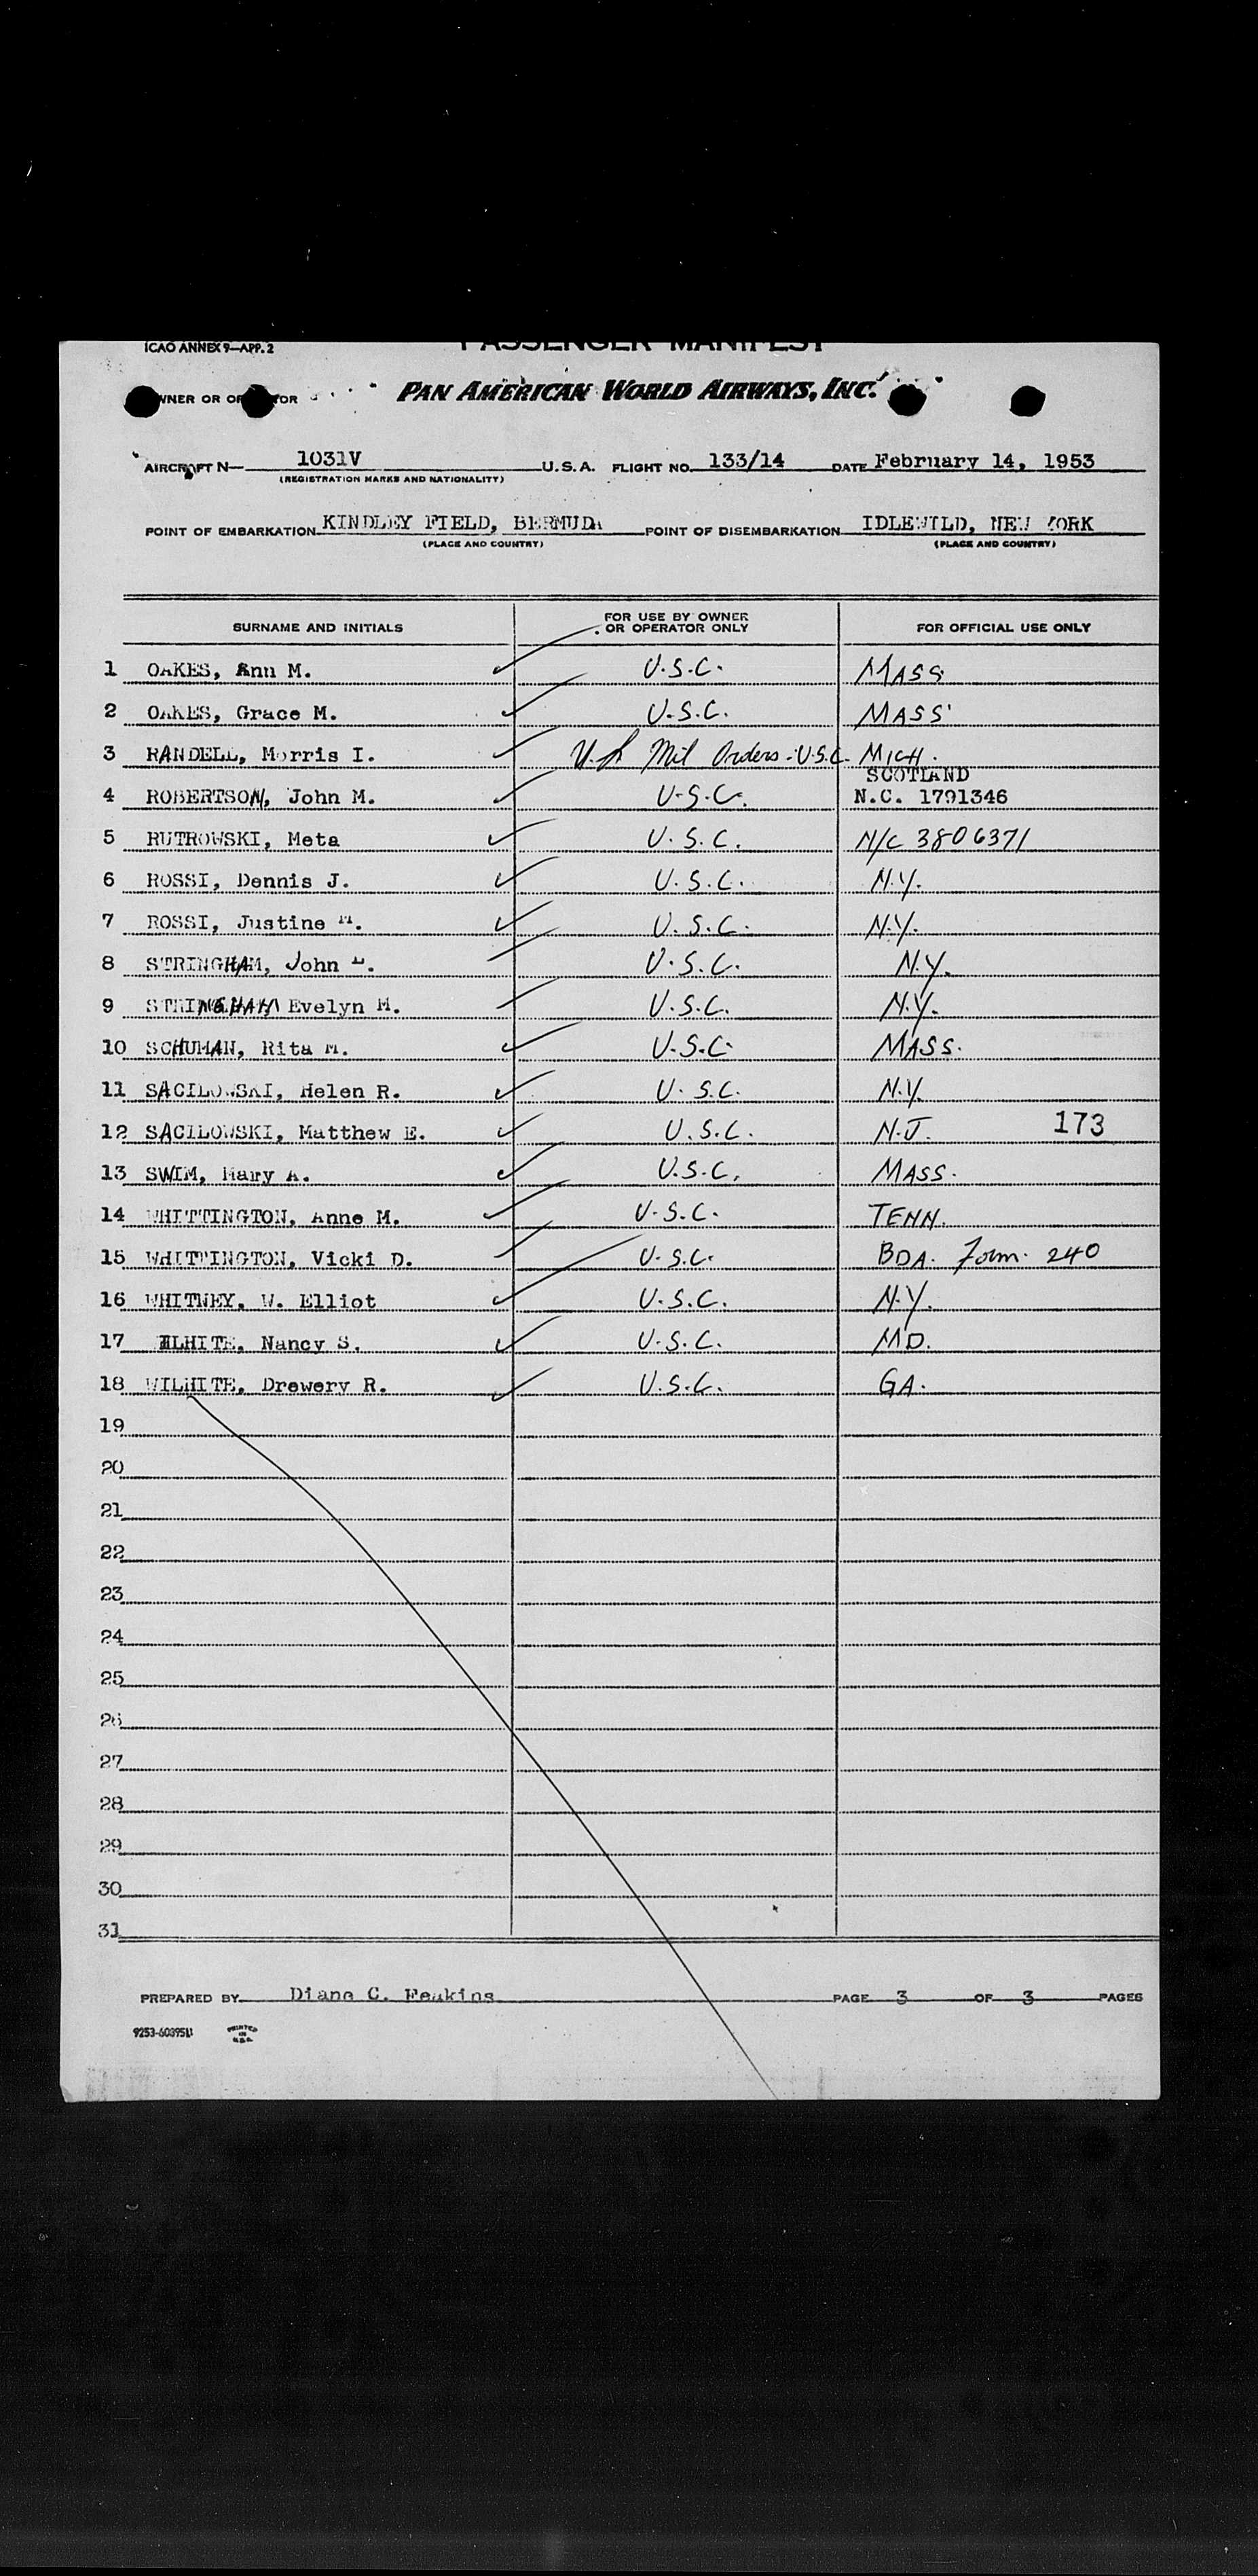 ICAO ANNEX 9—APP. 2
PASSENGER MANIFEST
OWNER OR OPERATOR PAN AMERICAN WORLD AIRWAYS, INC.
AIRCRAFT N— 1031V U.S.A. FLIGHT NO. 133/14 DATE February 14, 1953
(REGISTRATION MARKS AND NATIONALITY)
POINT OF EMBARKATION KINDLEY FIELD, BERMUDA POINT OF DISEMBARKATION IDLEWILD, NEW YORK
(PLACE AND COUNTRY) (PLACE AND COUNTRY)
SURNAME AND INITIALS FOR USE BY OWNER OR OPERATOR ONLY FOR OFFICIAL USE ONLY
1 OAKES, Ann M. U.S.C. MASS
2 OAKES, Grace M. U.S.C. MASS
3 RANDELL, Morris I. Mil Orders - U.S.C. MICH.
SCOTLAND
4 ROBERTSON, John M. U.S.C. N.C. 1791346
5 RUTROWSKI, Meta U.S.C. N/C 3806371
6 ROSSI, Dennis J. U.S.C. N.Y.
7 ROSSI, Justine M. U.S.C. N.Y.
8 STRINGHAM, John U.S.C. N.Y.
9 STRINGHAM Evelyn M. U.S.C. N.Y.
10 SCHUMAN, Rita M. U.S.C. MASS.
11 SACILOWSKI, Helen R. U.S.C. N.Y.
12 SACILOWSKI, Matthew E. U.S.C. N.J. 173
13 SWIM, Mary A. U.S.C. MASS.
14 WHITTINGTON, Anne M. U.S.C. TENN.
15 WHITTINGTON, Vicki D. U.S.C. BDA. Form 240
16 WHITNEY, W. Elliot U.S.C. N.Y.
17 WILHITE, Nancy S. U.S.C. MD.
18 WILHITE, Drewery R. U.S.C. GA.
19
20
21
22
23
24
25
26
27
28
29
30
31
PREPARED BY Diane C. PAGE 3 OF 3 PAGES
PRINTED IN U.S.A.